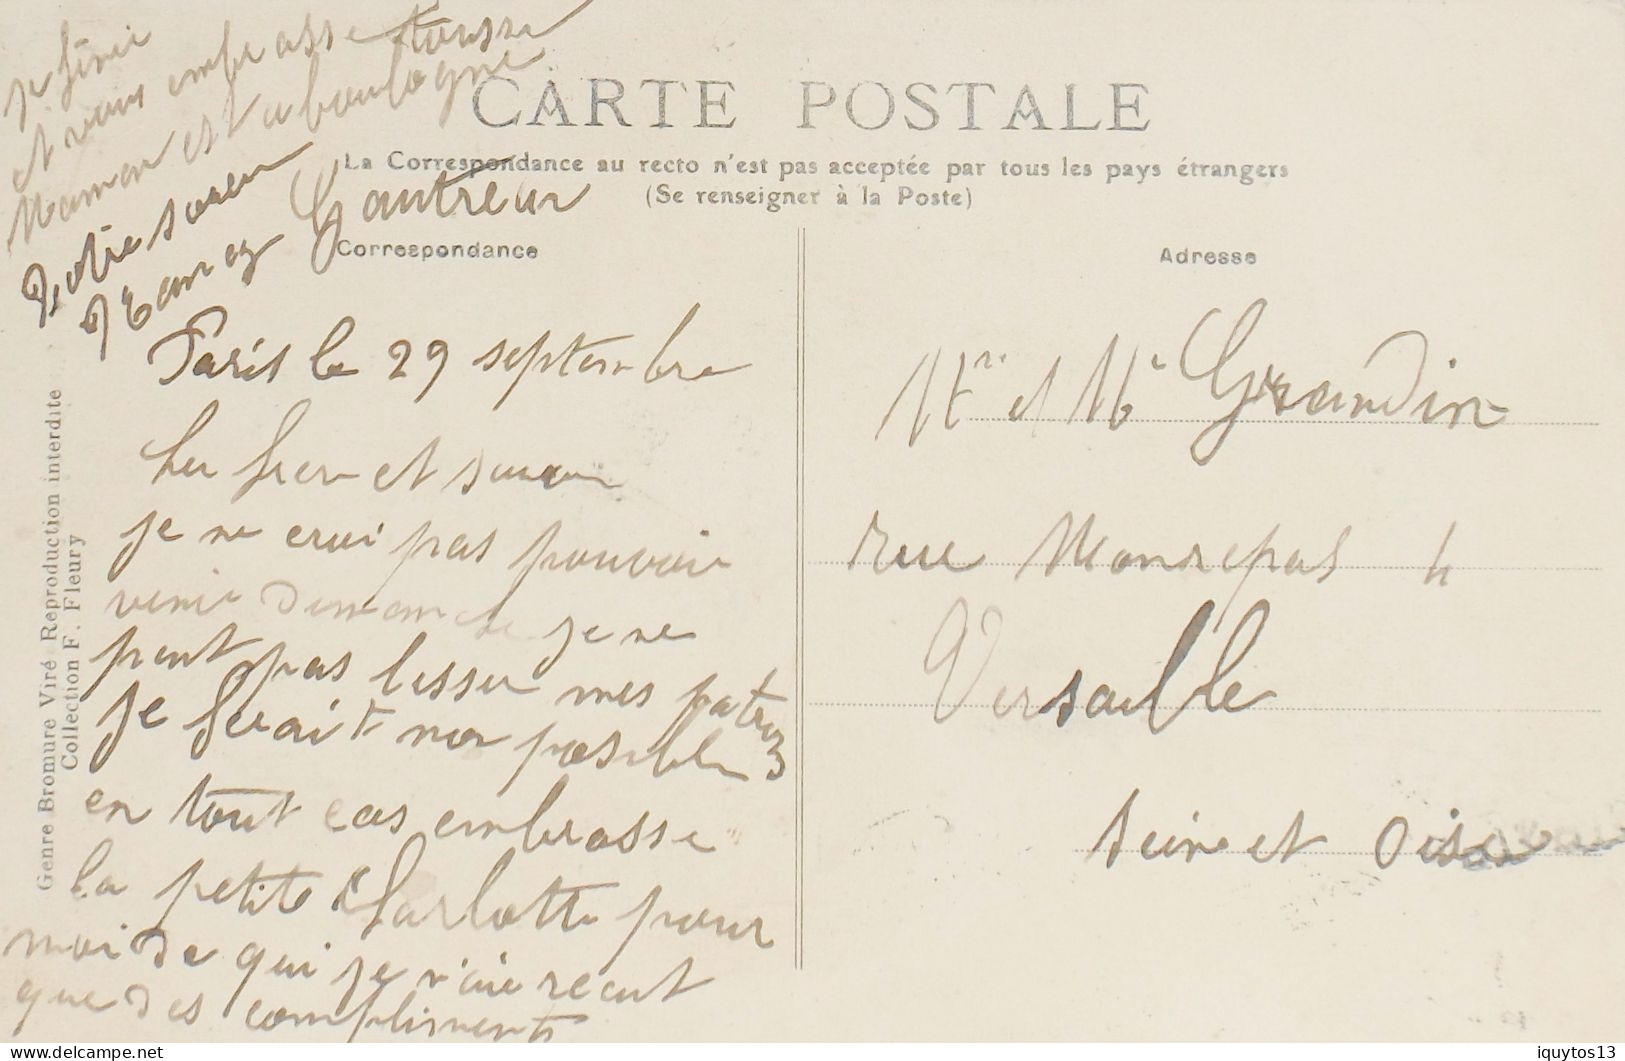 CARTE POSTALE
La Correspondance au recto n'est pas acceptée par tous les pays étrangers
(Se renseigner à la Poste)
Correspondance
Adresse
Genre Bromure Viré Reproduction interdite
Collection F. Fleury
Paris le 29 septembre
frere et
je ne croi pas pouvoir
venir Dimanche je ne
peut pas lesser mes patrons
je ferait mon posible
en tout cas embrasse
la petite Charlotte pour
moi de qui je n'aie recut
que des compliments
je finie
et vous embrasse tousse
Maman est a boulogne
Gautreau
Mr et Me Grandin
rue Monrepos 4
Versaille
Seine et Oise
iquytos13